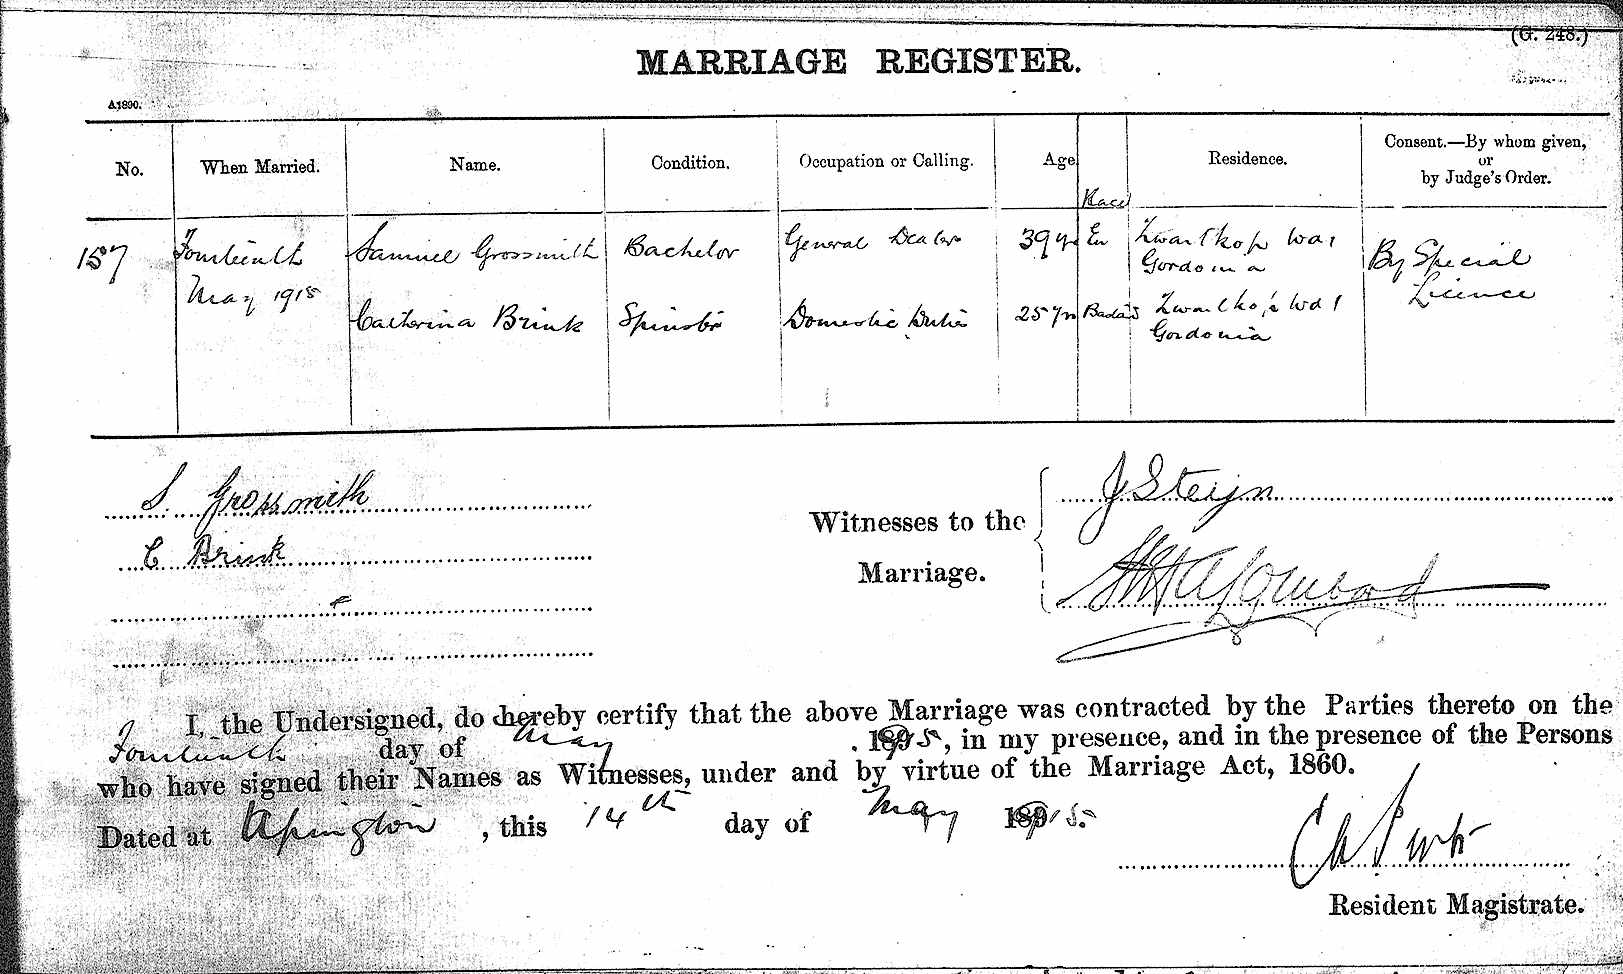 (G. 248.)
MARRIAGE REGISTER.
A1890.
No. When Married. Name. Condition. Occupation or Calling. Age Race Residence. Consent.—By whom given, or by Judge's Order.
157 Fourteenth May 1915 Samuel Grossmith Bachelor General Dealer 39 yrs Eu Zwartkop Wa1 Gordonia By Special Licence
Catherina Brink Spinster Domestic Duties 25 yrs Zwartkop Wd 1 Gordonia
S. Grossmith
C Brink
Witnesses to the Marriage.
J Steijn
I, the Undersigned, do hereby certify that the above Marriage was contracted by the Parties thereto on the
Fourteenth day of May 1915, in my presence, and in the presence of the Persons
who have signed their Names as Witnesses, under and by virtue of the Marriage Act, 1860.
Dated at Upington, this 14th day of May 1915.
Resident Magistrate.